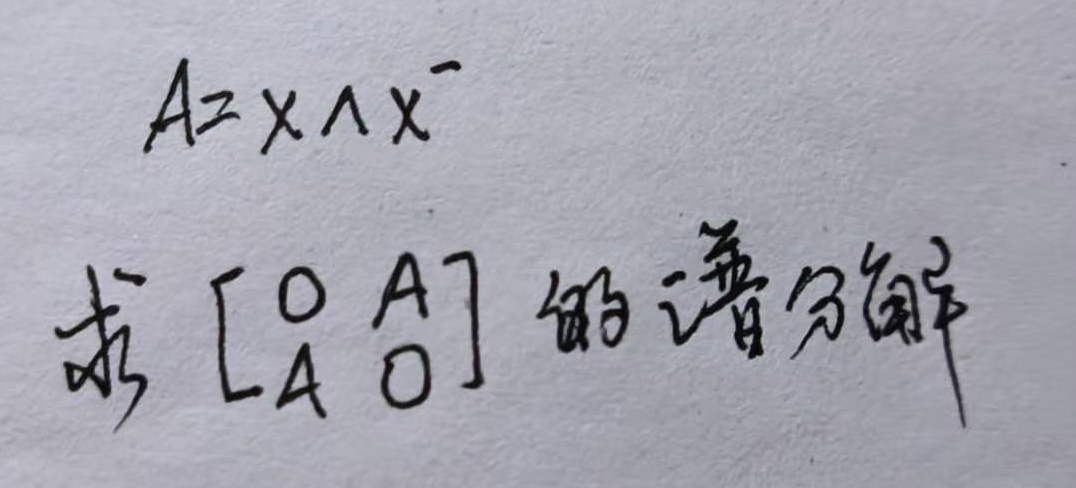 A=XΛX⁻
求[O A
A O]的谱分解